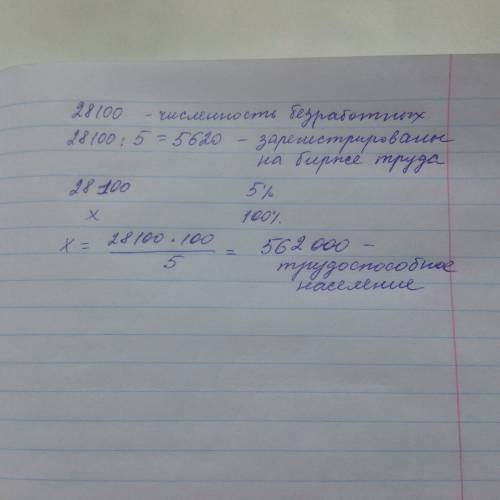 28100 - численность безработных
28100 : 5 = 5620 - зарегистрированы
на бирже труда
28100 5%
x 100%
x = 28100 · 100 / 5 = 562000 -
трудоспособное
население